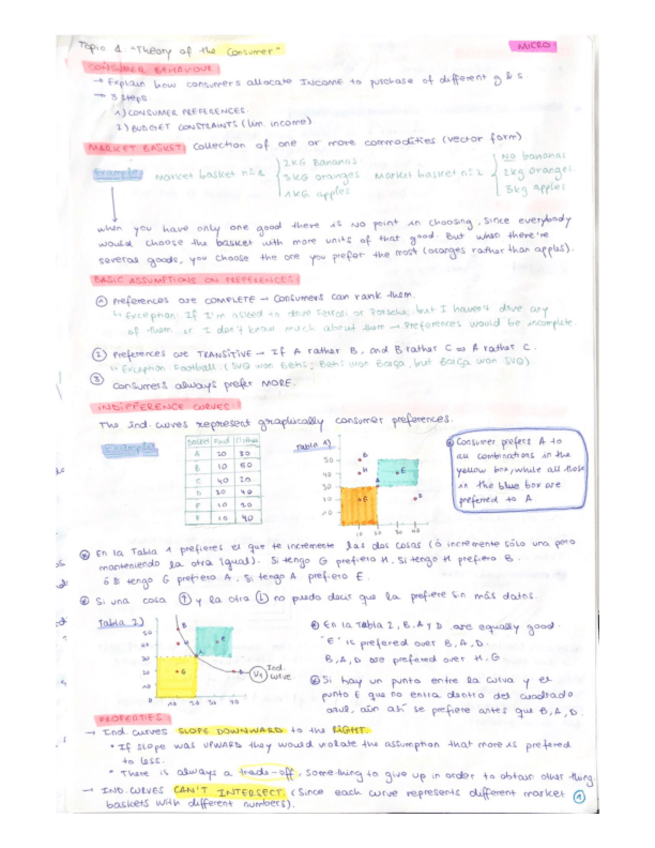 Topic 1. "Theory of the Consumer"
MICRO
CONSUMER BEHAVIOUR
→ Explain how consumers allocate INCOME to purchase of different g & s.
→ 3 steps
1) CONSUMER PREFERENCES.
2) BUDGET CONSTRAINTS (lim. income)
MARKET BASKET: Collection of one or more commodities (vector form)
Example: Market basket nº 1 { 2KG Bananas 3KG oranges 1KG apples
Market basket nº 2 { NO bananas 2kg oranges 3kg apples
When you have only one good there is NO point in choosing, since everybody
would choose the basket with more units of that good. But when there're
several goods, you choose the one you prefer the most (oranges rather than apples).
BASIC ASSUMPTIONS ON PREFERENCES:
① Preferences are COMPLETE → Consumers can rank them.
↳ Exception: If I'm asked to drive Ferrari or Porsche, but I haven't drive any
of them or I don't know much about them → Preferences would be incomplete.
② Preferences are TRANSITIVE → If A rather B, and B rather C ⇒ A rather C.
↳ Exception Football. (SVQ won Betis; Betis won Barça, but Barça won SVQ)
③ Consumers always prefer MORE.
INDIFFERENCE CURVES:
The Ind. curves represent graphically consumer preferences.
Example
Basket Food Clothes
A 20 30
B 10 50
C 40 20
D 30 40
F 10 20
E 10 40
Tabla 1)
50
40
30
20
10
B
H
E
A
G
D
10 20 30 40
Consumer prefers A to
all combinations in the
yellow box, while all those
in the blue box are
preferred to A.
En la Tabla 1 prefieres el que te incremente las dos cosas (ó incremente sólo una pero
manteniendo la otra igual). Si tengo G prefiero H, Si tengo H prefiero B.
ó si tengo G prefiero A, Si tengo A prefiero E.
Si una cosa ↑ y la otra ↓ no puedo decir que la prefiere sin más datos.
Tabla 2)
50
40
30
20
10
0
B
H
E
A
G
D
U1
Ind. curve
10 20 30 40
En la Tabla 2, B, A y D are equally good.
"E" is preferred over B, A, D.
B, A, D are preferred over H, G
Si hay un punto entre la curva y el
punto E que no entra dentro del cuadrado
azul, aún así se prefiere antes que B, A, D.
PROPERTIES:
→ Ind. curves SLOPE DOWNWARD to the RIGHT.
• If slope was UPWARD they would violate the assumption that more is prefered
to less.
• There is always a trade-off, something to give up in order to obtain other thing.
→ IND. CURVES CAN'T INTERSECT (Since each curve represents different market
baskets with different numbers).
①